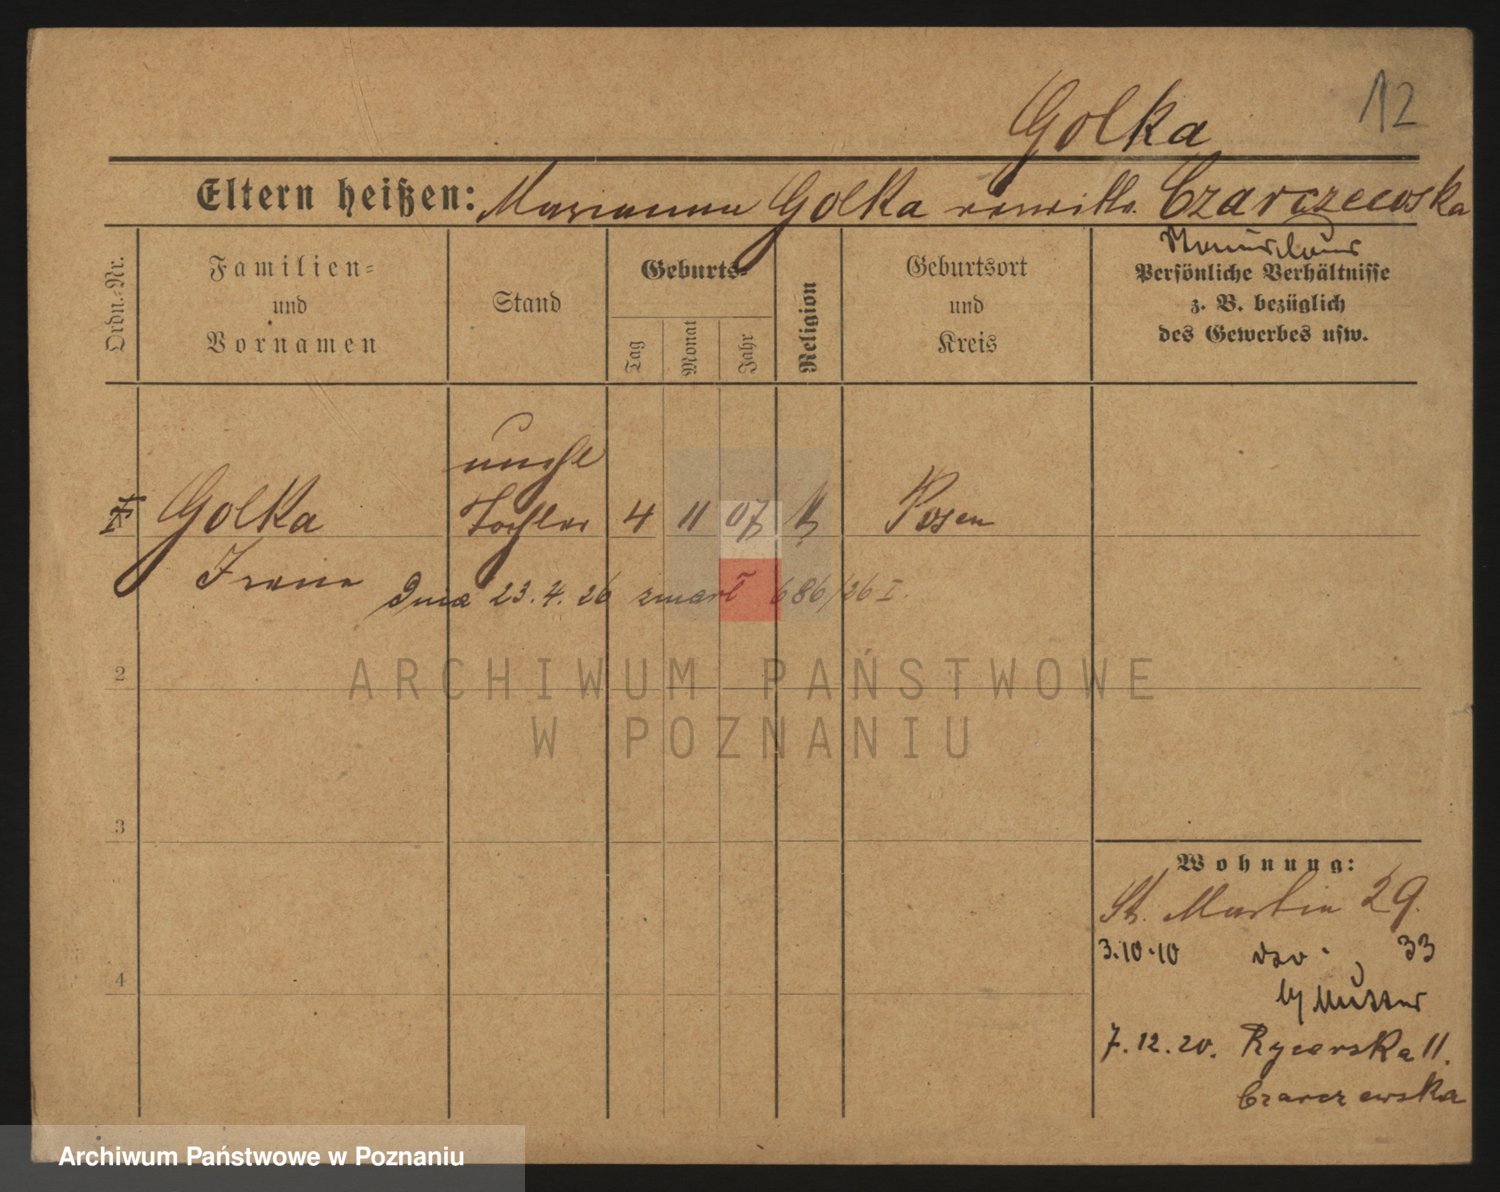 12
Golka
Eltern heißen: Marianna Golka verwittw. Czarczewska
Ordn.-Nr.
Familien-
und
Vornamen
Stand
Geburts-
Tag
Monat
Jahr
Religion
Geburtsort
und
Kreis
Persönliche Verhältnisse
z. B. bezüglich
des Gewerbes usw.
unehl
Golka Tochter 4 11 07 k Posen
Irene
Dnia 23.4.26 zmarł 686/26 I.
ARCHIWUM PAŃSTWOWE
W POZNANIU
2
3
4
Wohnung:
St. Martin 29.
3.10.10 33
b/ Mutter
7.12.20. Rycerska 11.
Czarczewska
Archiwum Państwowe w Poznaniu